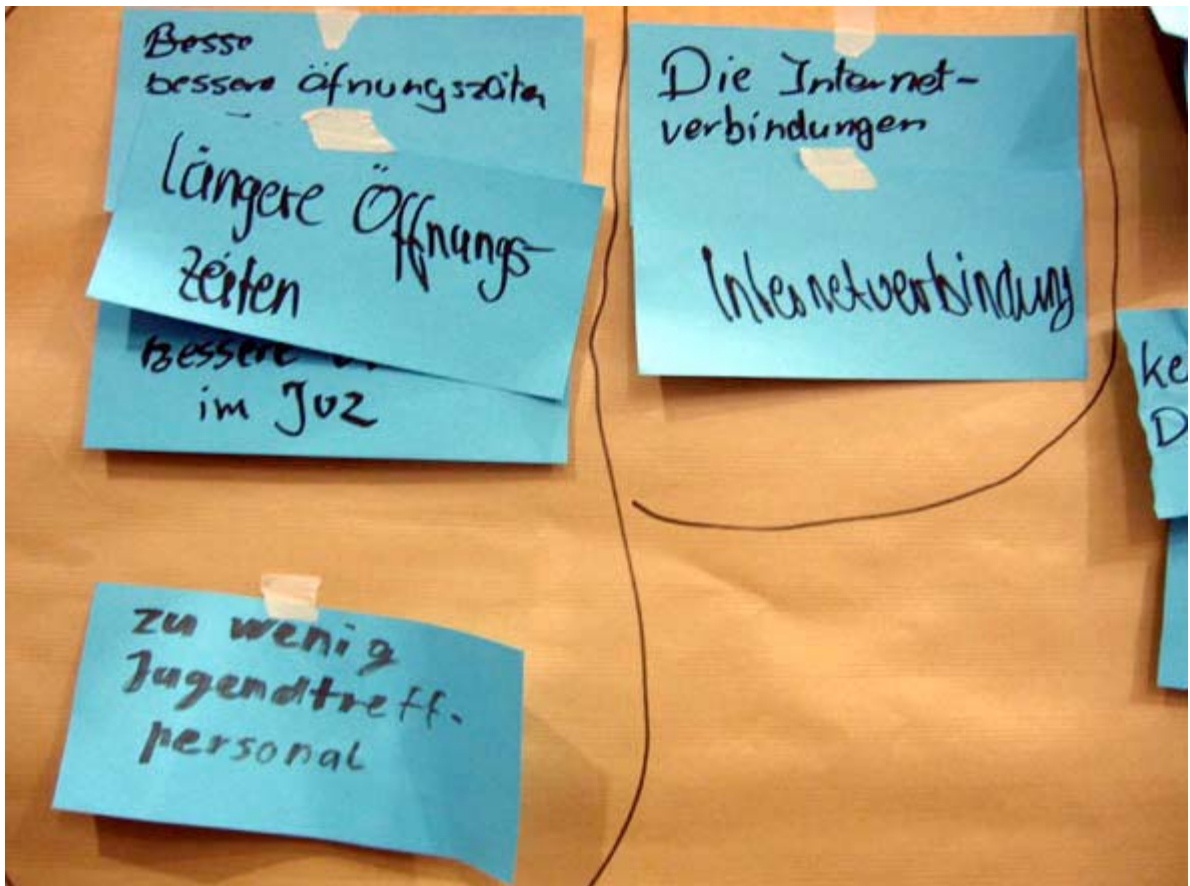 Besse
bessere äfnungszeiten
längere Öffnungs-
zeiten
Bessere
im Juz
zu wenig
Jugendtreff-
personal
Die Internet-
verbindungen
Internetverbindung